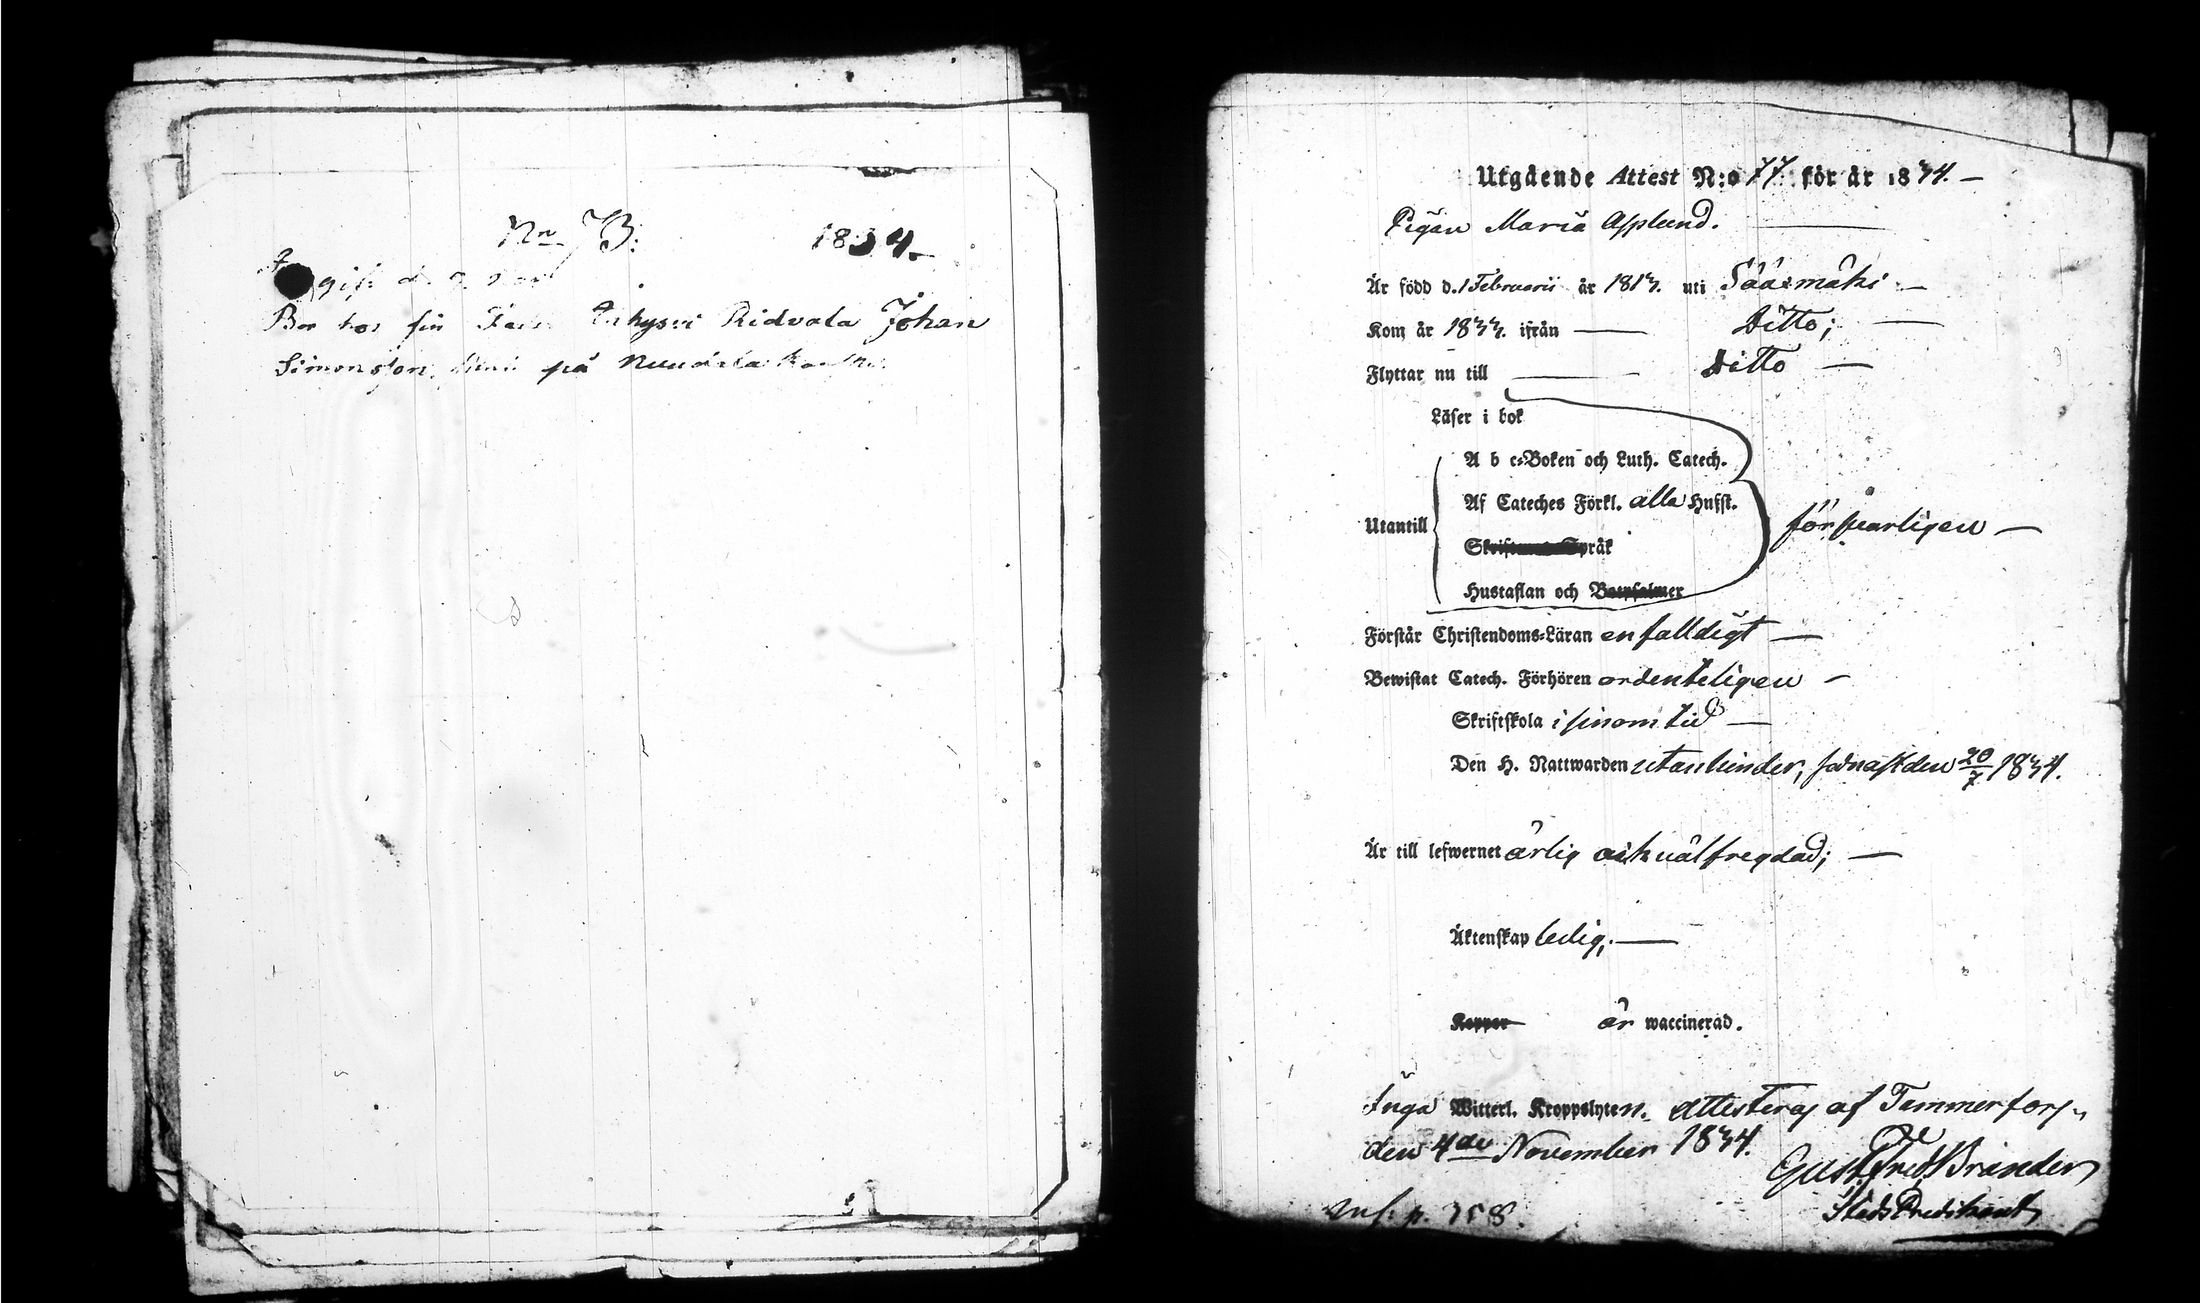 Nr 73. 1834.
Bor hos sin Ridvala Johan
Simonsson på
Utgående Attest N:o 77 för år 1834.
Pigan Maria Asplund.
Är född d. 1 Februarii år 1813. uti Sääxmäki
Kom år 1833. ifrån Ditto;
Flyttar nu till Ditto
Läser i bok
A b c-Boken och Luth. Catech.
Af Cateches Förkl. alla Hufst.
Utantill försvarligen
Skriftenes Språk
Hustaflan och Botpsalmer
Förstår Christendoms-Läran enfalldigt
Bewistat Catech. Förhören ordenteligen
Skriftskola i sinom tid
Den H. Nattwarden utan hinder, sednast den 20/7 1834.
Är till lefwernet ärlig och välfregdad;
Äktenskap ledig,
Koppor är waccinerad.
Inga Witterl. Kroppslyten. Attesteras af Tammerfors,
den 4de November 1834.
Gust. Fred. Brander
Stads Predikant
Inf. p. 358.